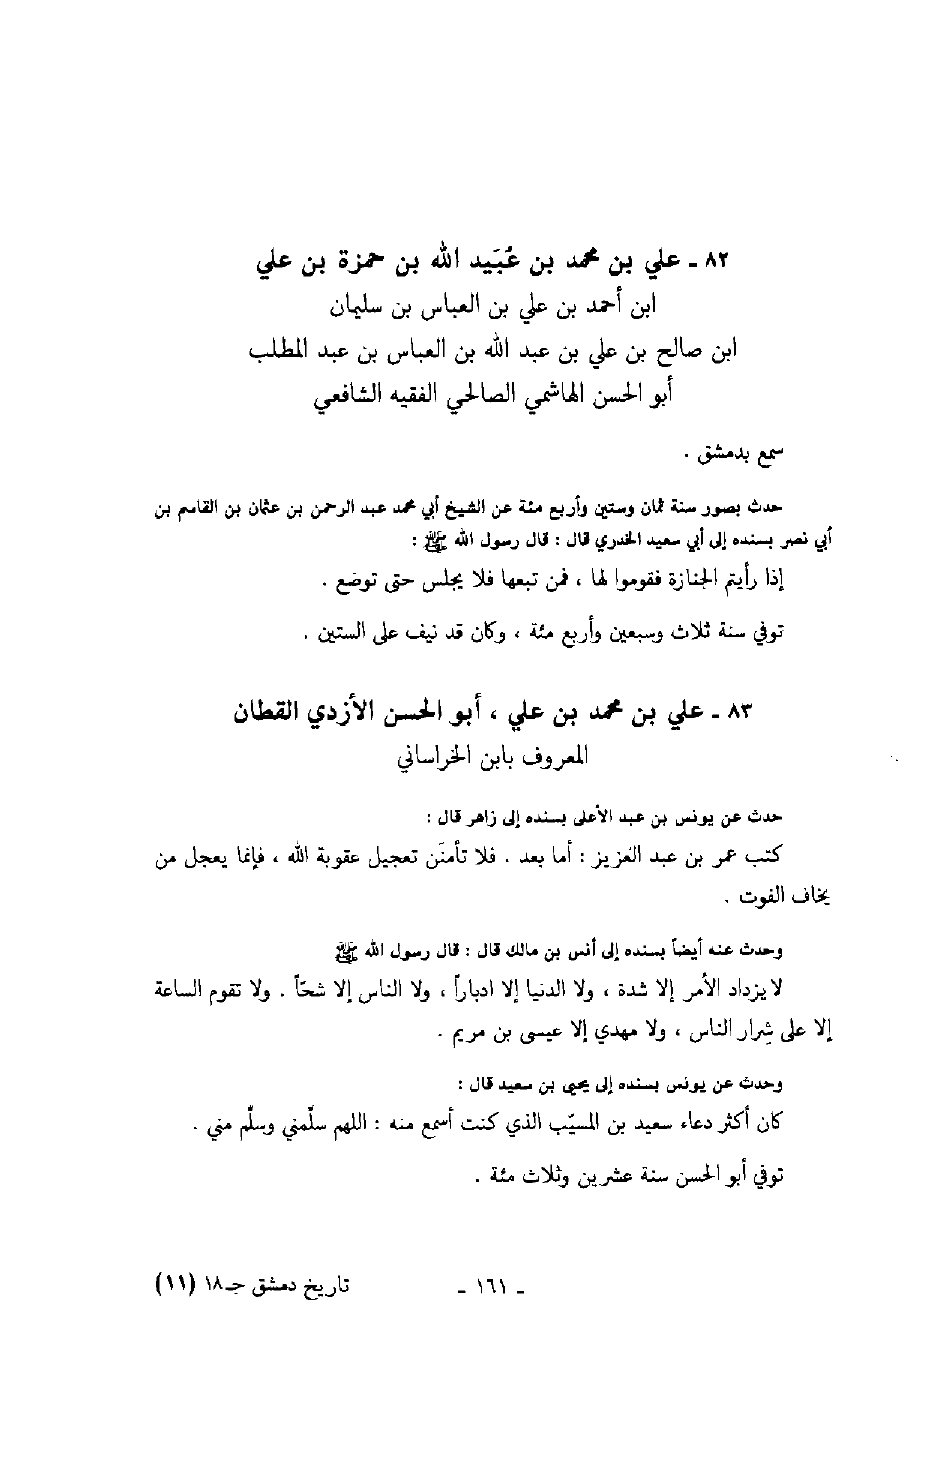 ٨٢ ـ علي بن محمد بن عُبَيد الله بن حمزة بن علي
ابن أحمد بن علي بن العباس بن سليمان
ابن صالح بن علي بن عبد الله بن العباس بن عبد المطلب
أبو الحسن الهاشمي الصالحي الفقيه الشافعي
سمع بدمشق .
حدث بصور سنة ثمان وستين وأربع مئة عن الشيخ أبي محمد عبد الرحمن بن عثمان بن القاسم بن
أبي نصر بسنده إلى أبي سعيد الخدري قال : قال رسول الله ﷺ :
إذا رأيتم الجنازة فقوموا لها ، فمن تبعها فلا يجلس حتى توضع .
توفي سنة ثلاث وسبعين وأربع مئة ، وكان قد نيف على الستين .
٨٣ ـ علي بن محمد بن علي ، أبو الحسن الأزدي القطان
المعروف بابن الخراساني
حدث عن يونس بن عبد الأعلى بسنده إلى زاهر قال :
كتب عمر بن عبد العزيز : أما بعد . فلا تأمنَن تعجيل عقوبة الله ، فإنما يعجل من
يخاف الفوت .
وحدث عنه أيضاً بسنده إلى أنس بن مالك قال : قال رسول الله ﷺ
لا يزداد الأمر إلا شدة ، ولا الدنيا إلا ادباراً ، ولا الناس إلا شحّاً . ولا تقوم الساعة
إلا على شِرار الناس ، ولا مهدي إلا عيسى بن مريم .
وحدث عن يونس بسنده إلى يحيى بن سعيد قال :
كان أكثر دعاء سعيد بن المسيّب الذي كنت أسمع منه : اللهم سلّمني وسلّم مني .
توفي أبو الحسن سنة عشرين وثلاث مئة .
ـ ١٦١ ـ
تاريخ دمشق جـ١٨ (١١)